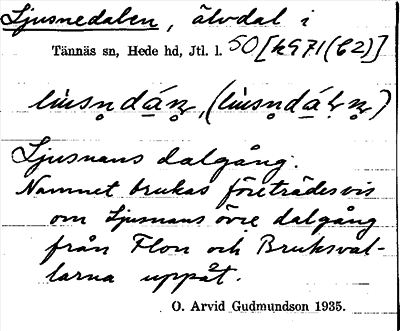 Ljusnedalen, älvdal i
Tännäs sn, Hede hd, Jtl. l. 50 [k971(C2)]
Ljusnans dalgång.
Namnet brukas företrädesvis
om Ljusnans övre dalgång
från Flon och Bruksval-
larna uppåt.
O. Arvid Gudmundson 1935.